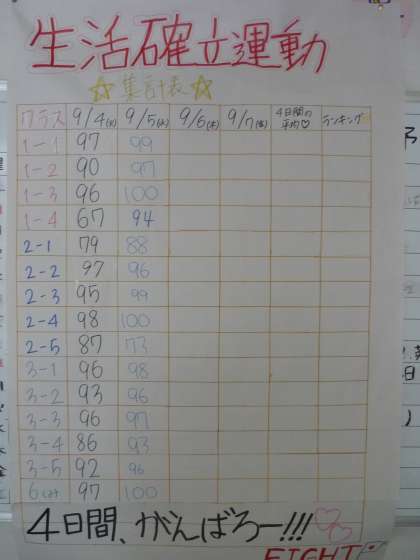 生活確立運動
☆集計表☆
クラス 9/4(火) 9/5(水) 9/6(木) 9/7(金) 4日間の平均♡ ランキング
1-1 97 99
1-2 90 97
1-3 96 100
1-4 67 94
2-1 79 88
2-2 97 96
2-3 95 99
2-4 98 100
2-5 87 73
3-1 96 98
3-2 93 96
3-3 96 97
3-4 86 93
3-5 92 96
6(さ) 97 100
4日間、がんばろー!!!
FIGHT